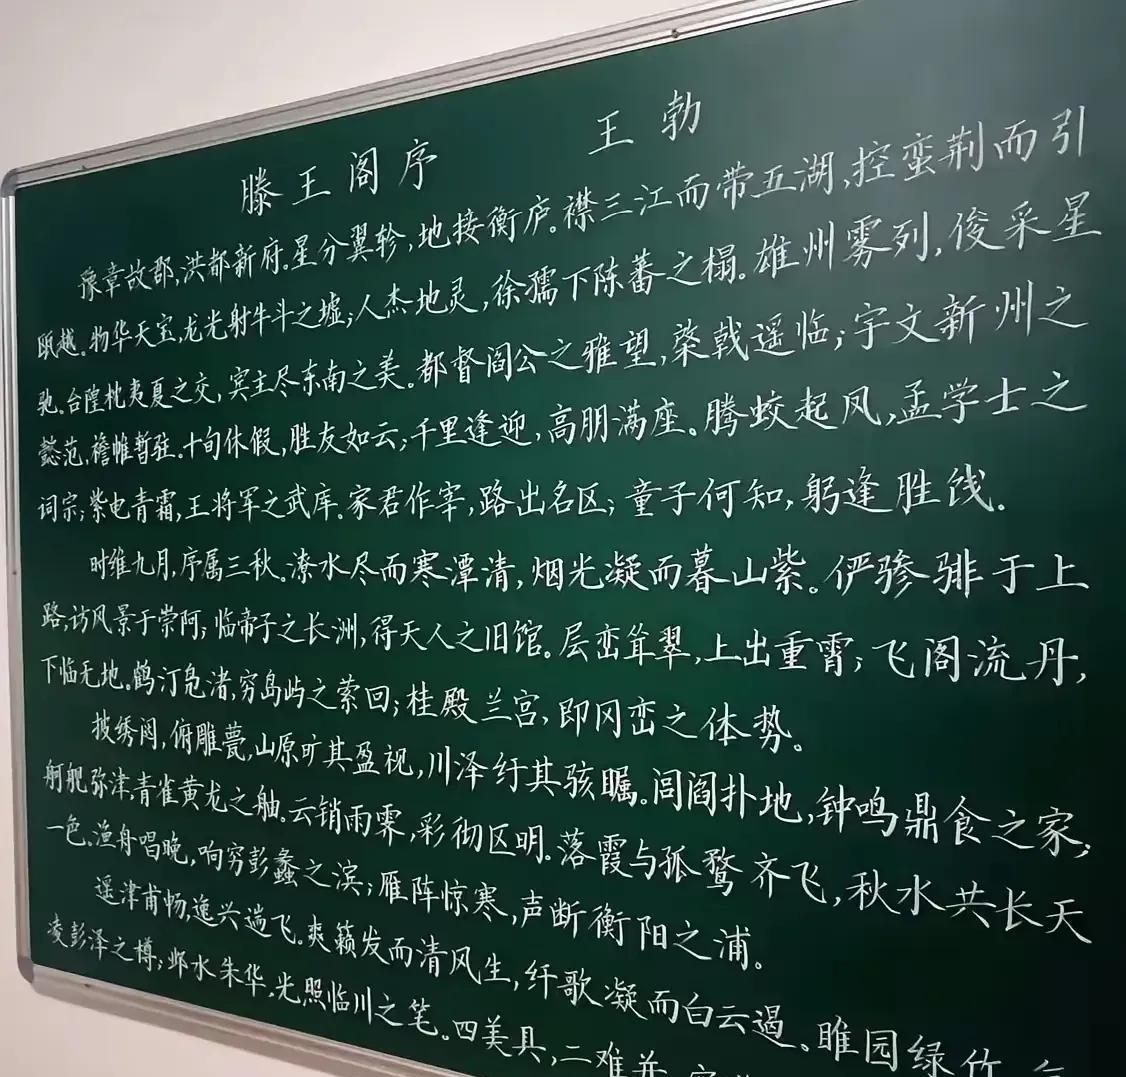 滕王阁序 王勃
豫章故郡,洪都新府。星分翼轸,地接衡庐。襟三江而带五湖,控蛮荆而引
瓯越。物华天宝,龙光射牛斗之墟;人杰地灵,徐孺下陈蕃之榻。雄州雾列,俊采星
驰。台隍枕夷夏之交,宾主尽东南之美。都督阎公之雅望,棨戟遥临;宇文新州之
懿范,襜帷暂驻。十旬休假,胜友如云;千里逢迎,高朋满座。腾蛟起风,孟学士之
词宗;紫电青霜,王将军之武库。家君作宰,路出名区;童子何知,躬逢胜饯。
时维九月,序属三秋。潦水尽而寒潭清,烟光凝而暮山紫。俨骖騑于上
路,访风景于崇阿;临帝子之长洲,得天人之旧馆。层峦耸翠,上出重霄;飞阁流丹,
下临无地。鹤汀凫渚,穷岛屿之萦回;桂殿兰宫,即冈峦之体势。
披绣闼,俯雕甍,山原旷其盈视,川泽纡其骇瞩。闾阎扑地,钟鸣鼎食之家;
舸舰弥津,青雀黄龙之舳。云销雨霁,彩彻区明。落霞与孤鹜齐飞,秋水共长天
一色。渔舟唱晚,响穷彭蠡之滨;雁阵惊寒,声断衡阳之浦。
遥津甫畅,逸兴遄飞。爽籁发而清风生,纤歌凝而白云遏。睢园绿竹,气
凌彭泽之樽;邺水朱华,光照临川之笔。四美具,二难并